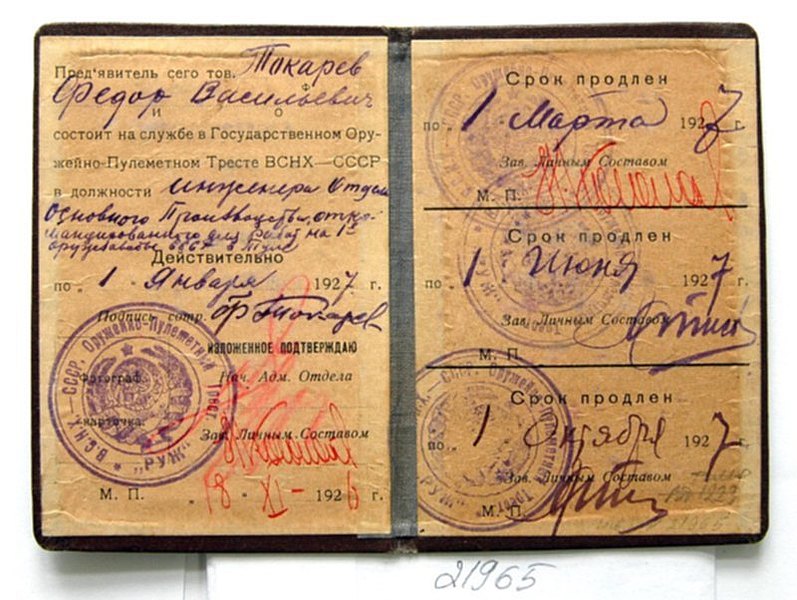 Пред'явитель сего тов. Токарев
Федор Васильевич
Ф
И О
состоит на службе в Государственном Ору-
жейно-Пулеметном Тресте ВСНХ — СССР
в должности инженера Отдела
Основного Производства, отко-
мандированного для работ на 1й
в Туле
Действительно
по „ 1 Января 1927 г.
Подпись сотр. Ф Токарев
ИЗЛОЖЕННОЕ ПОДТВЕРЖДАЮ
Фотограф. Нач. Адм. Отдела
карточка. Зав. Личным Составом
М. П. "18" IX — 1926 г.
ВСНХ — СССР Оружейно-Пулеметный Трест
"РУЖ"
Срок продлен
по „ 1 Марта 1927 г.
Зав. Личным Составом
М. П.
Срок продлен
по „ 1 Июня 1927 г.
Зав. Личным Составом
М. П.
Срок продлен
по „ 1 Октября 1927 г.
Зав. Личным Составом
М. П.
21965
21965